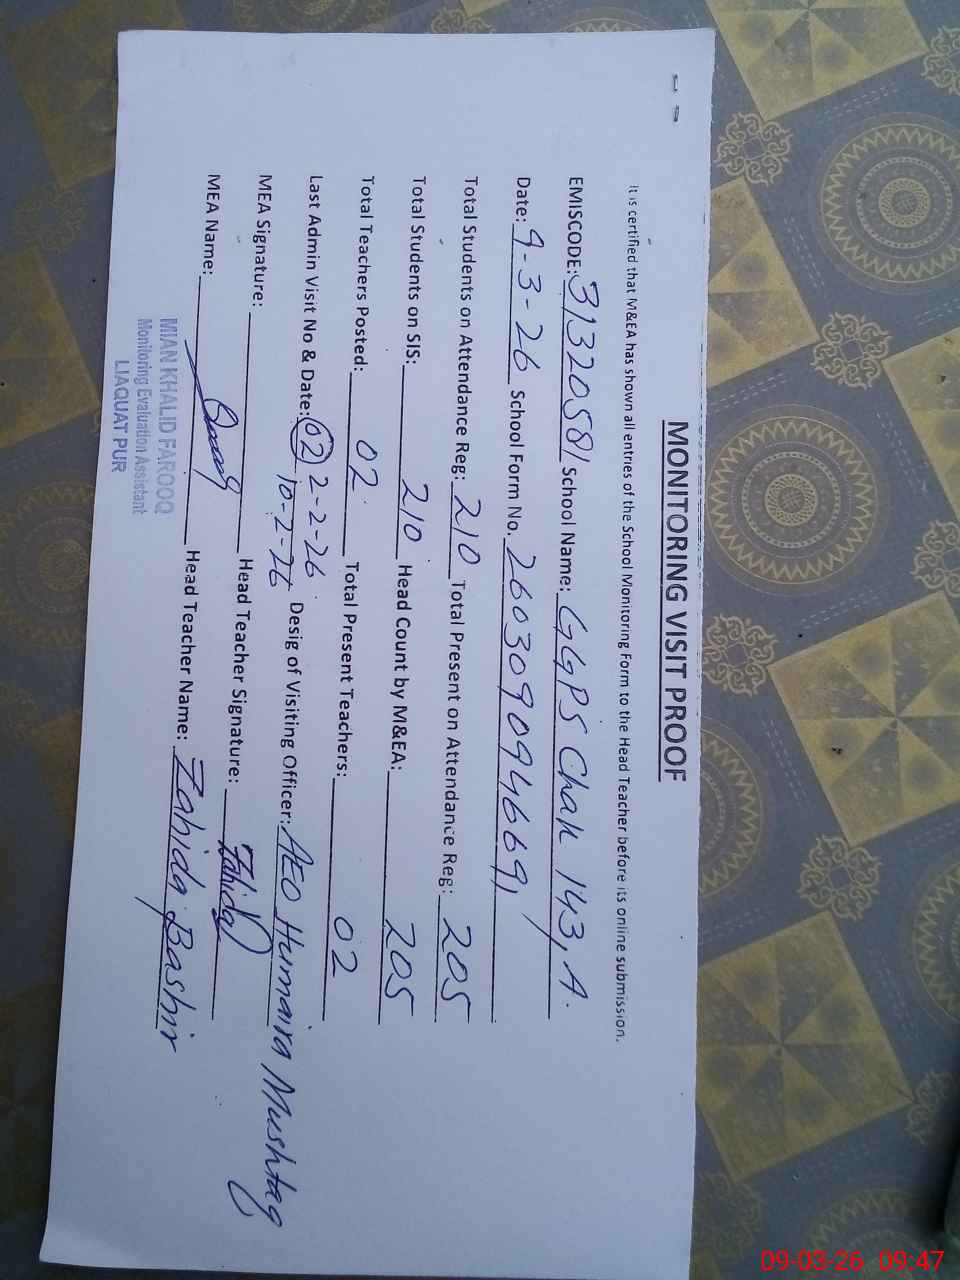 MONITORING VISIT PROOF
It is certified that M&EA has shown all entries of the School Monitoring Form to the Head Teacher before its online submission.
EMISCODE: 31320581 School Name: GGPS Chak 143, A.
Date: 9-3-26 School Form No. 260309094669
Total Students on Attendance Reg: 210 Total Present on Attendance Reg: 205
Total Students on SIS: 210 Head Count by M&EA: 205
Total Teachers Posted: 02 Total Present Teachers: 02
Last Admin Visit No & Date: 02 2-2-26 Desig of Visiting Officer: AEO Humaira Mushtaq
10-2-26
MEA Signature: Head Teacher Signature: Zahida
MEA Name: Head Teacher Name: Zahida Bashir
MIAN KHALID FAROOQ
Monitoring Evaluation Assistant
LIAQUAT PUR
09-03-26 09:47